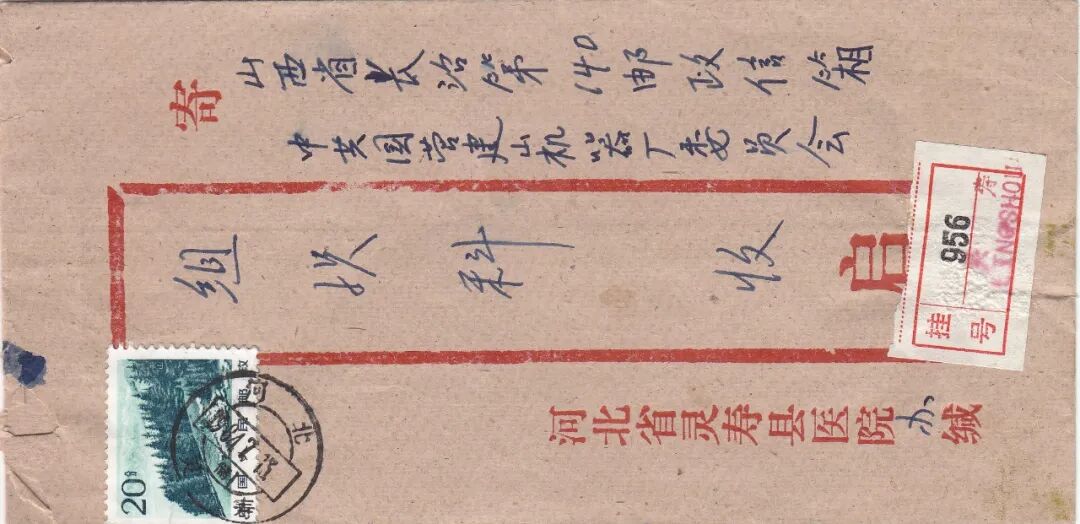 寄
山西省长治第140邮政信箱
中共国营建山机器厂委员会
组织科 收
启
挂号
956
寿
河北省灵寿县医院办缄
20分
河北